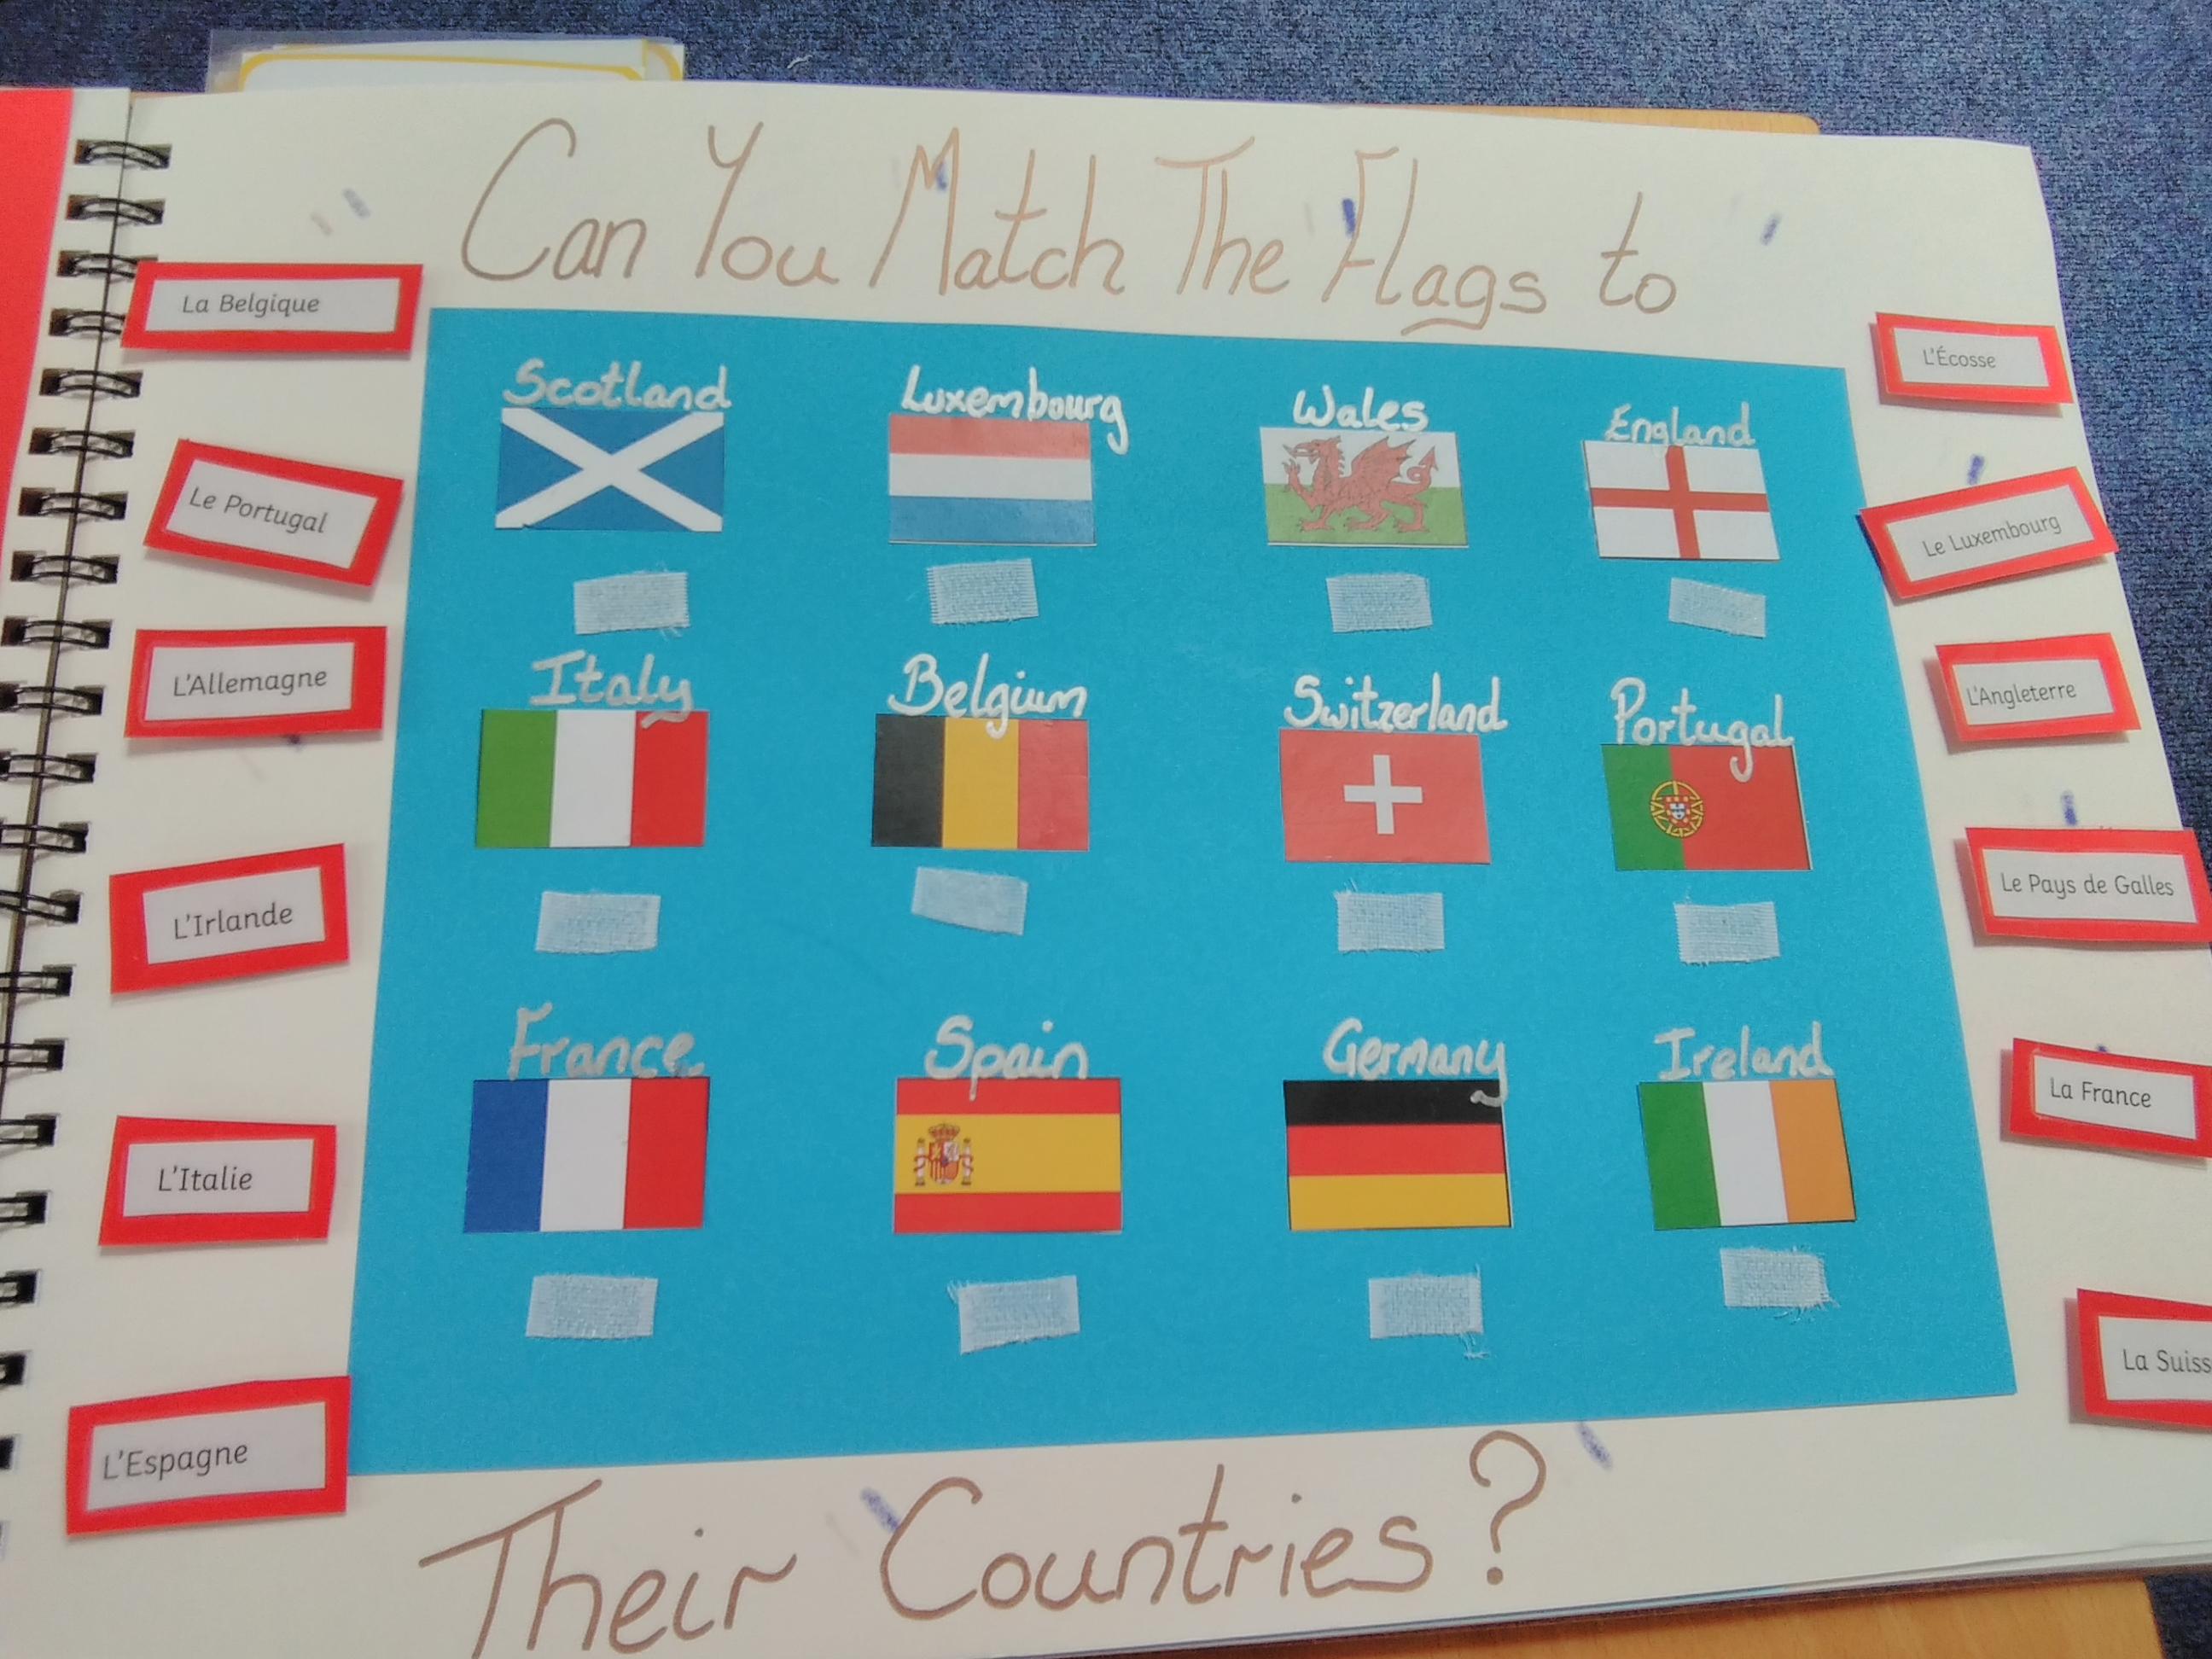 Can You Match The Flags to
La Belgique
Le Portugal
L'Allemagne
L'Irlande
L'Italie
L'Espagne
Scotland
Luxembourg
Wales
England
Italy
Belgium
Switzerland
Portugal
France
Spain
Germany
Ireland
L'Écosse
Le Luxembourg
L'Angleterre
Le Pays de Galles
La France
La Suiss
Their Countries?